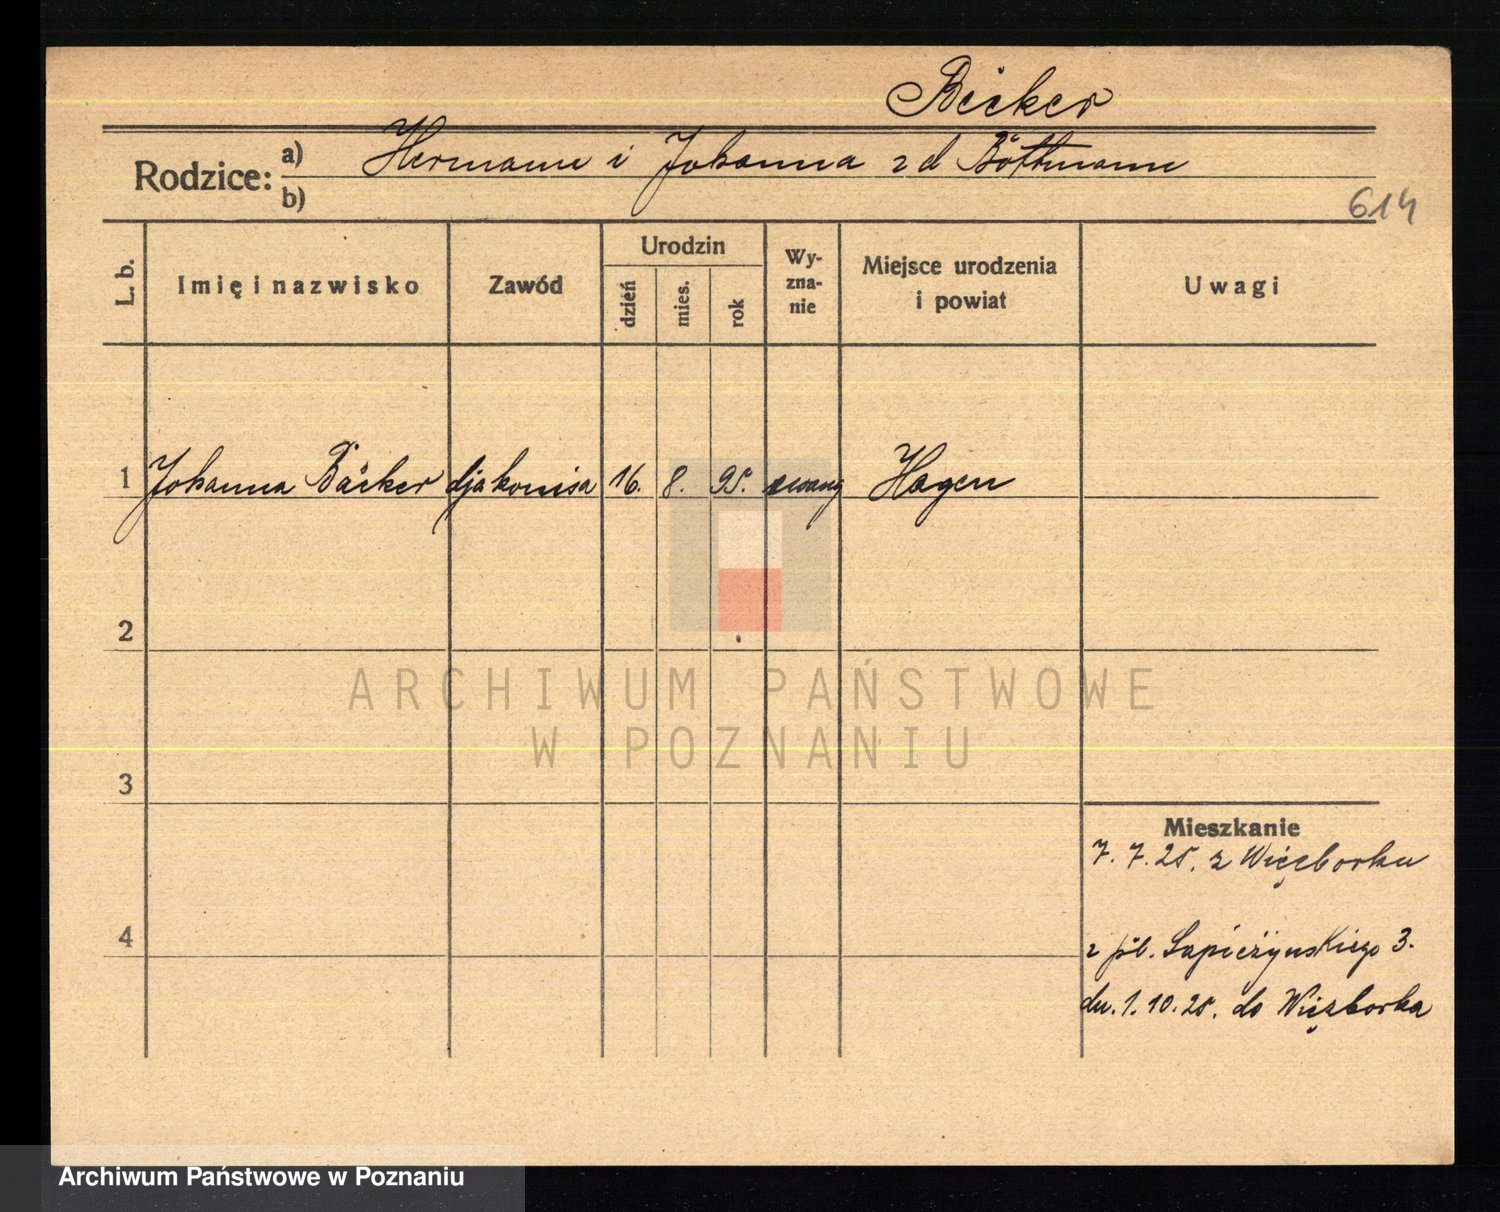 Bäcker
Rodzice: a) Hermann i Johanna z d Böttmann
b)
614
L. b.
Imię i nazwisko
Zawód
Urodzin
dzień
mies.
rok
Wy-
zna-
nie
Miejsce urodzenia
i powiat
Uwagi
1 Johanna Bäcker djakonisa 16. 8. 95. ewang Hagen
2
3
4
Mieszkanie
7. 7. 25. z Więcborku
z pl. Sapieżyńskiego 3.
dn. 1. 10. 25. do Więcborka
ARCHIWUM PAŃSTWOWE
W POZNANIU
Archiwum Państwowe w Poznaniu